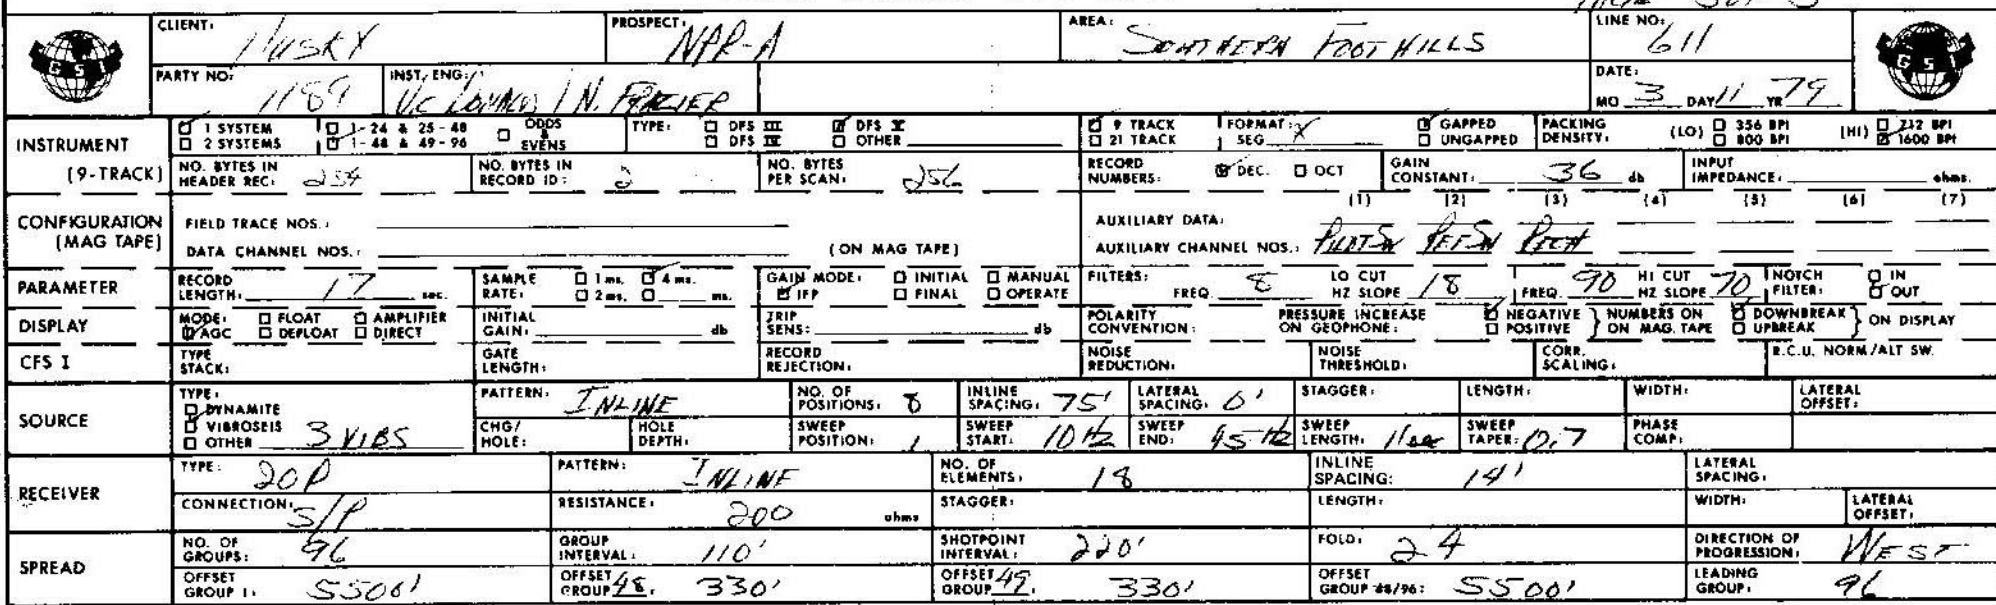 CLIENT: HUSKY PROSPECT: NPR-A AREA: SOUTHERN FOOTHILLS LINE NO: 611
GSI GSI
PARTY NO: 1189 INST. ENG: N. FRAZIER DATE: MO 3 DAY 11 YR 79
INSTRUMENT (9-TRACK) 1 SYSTEM 1-24 & 25-48 ODDS & EVENS TYPE: DFS III DFS V 9 TRACK FORMAT: GAPPED PACKING DENSITY: (LO) 356 BPI (HI) 712 BPI
2 SYSTEMS 1-48 & 49-96 DFS IV OTHER 21 TRACK SEG X UNGAPPED 800 BPI 1600 BPI
NO. BYTES IN HEADER REC: 254 NO. BYTES IN RECORD ID: 2 NO. BYTES PER SCAN: 256 RECORD NUMBERS: DEC. OCT GAIN CONSTANT: 36 db INPUT IMPEDANCE: ohms.
(1) (2) (3) (4) (5) (6) (7)
CONFIGURATION (MAG TAPE) FIELD TRACE NOS.: AUXILIARY DATA:
DATA CHANNEL NOS.: (ON MAG TAPE) AUXILIARY CHANNEL NOS.:
PARAMETER RECORD LENGTH: 17 sec. SAMPLE RATE: 1 ms. 4 ms. 2 ms. ms. GAIN MODE: INITIAL MANUAL IFP FINAL OPERATE FILTERS: FREQ 8 LO CUT HZ SLOPE 18 FREQ 90 HI CUT HZ SLOPE 70 NOTCH FILTER: IN OUT
DISPLAY MODE: FLOAT AMPLIFIER AGC DEFLOAT DIRECT INITIAL GAIN: db TRIP SENS: db POLARITY CONVENTION: PRESSURE INCREASE ON GEOPHONE: NEGATIVE POSITIVE } NUMBERS ON ON MAG. TAPE DOWNBREAK UPBREAK } ON DISPLAY
CFS I TYPE STACK: GATE LENGTH: RECORD REJECTION: NOISE REDUCTION: NOISE THRESHOLD: CORR. SCALING: R.C.U. NORM/ALT SW.
SOURCE TYPE: DYNAMITE VIBROSEIS OTHER 3 VIBS PATTERN: INLINE NO. OF POSITIONS: 8 INLINE SPACING: 75' LATERAL SPACING: 0' STAGGER: LENGTH: WIDTH: LATERAL OFFSET:
CHG/HOLE: HOLE DEPTH: SWEEP POSITION: 1 SWEEP START: 10 Hz SWEEP END: 45 Hz SWEEP LENGTH: 11 sec SWEEP TAPER: 0.7 PHASE COMP:
RECEIVER TYPE: 20P PATTERN: INLINE NO. OF ELEMENTS: 18 INLINE SPACING: 14' LATERAL SPACING:
CONNECTION: S/P RESISTANCE: 200 ohms STAGGER: LENGTH: WIDTH: LATERAL OFFSET:
SPREAD NO. OF GROUPS: 96 GROUP INTERVAL: 110' SHOTPOINT INTERVAL: 220' FOLD: 24 DIRECTION OF PROGRESSION: WEST
OFFSET GROUP 1: 5500' OFFSET GROUP 48: 330' OFFSET GROUP 49: 330' OFFSET GROUP 48/96: 5500' LEADING GROUP: 96